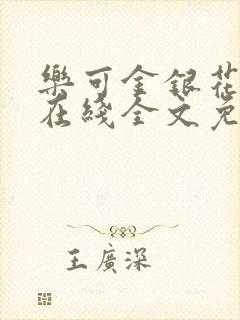 樂可金銀花
在綫全文免
王廣深